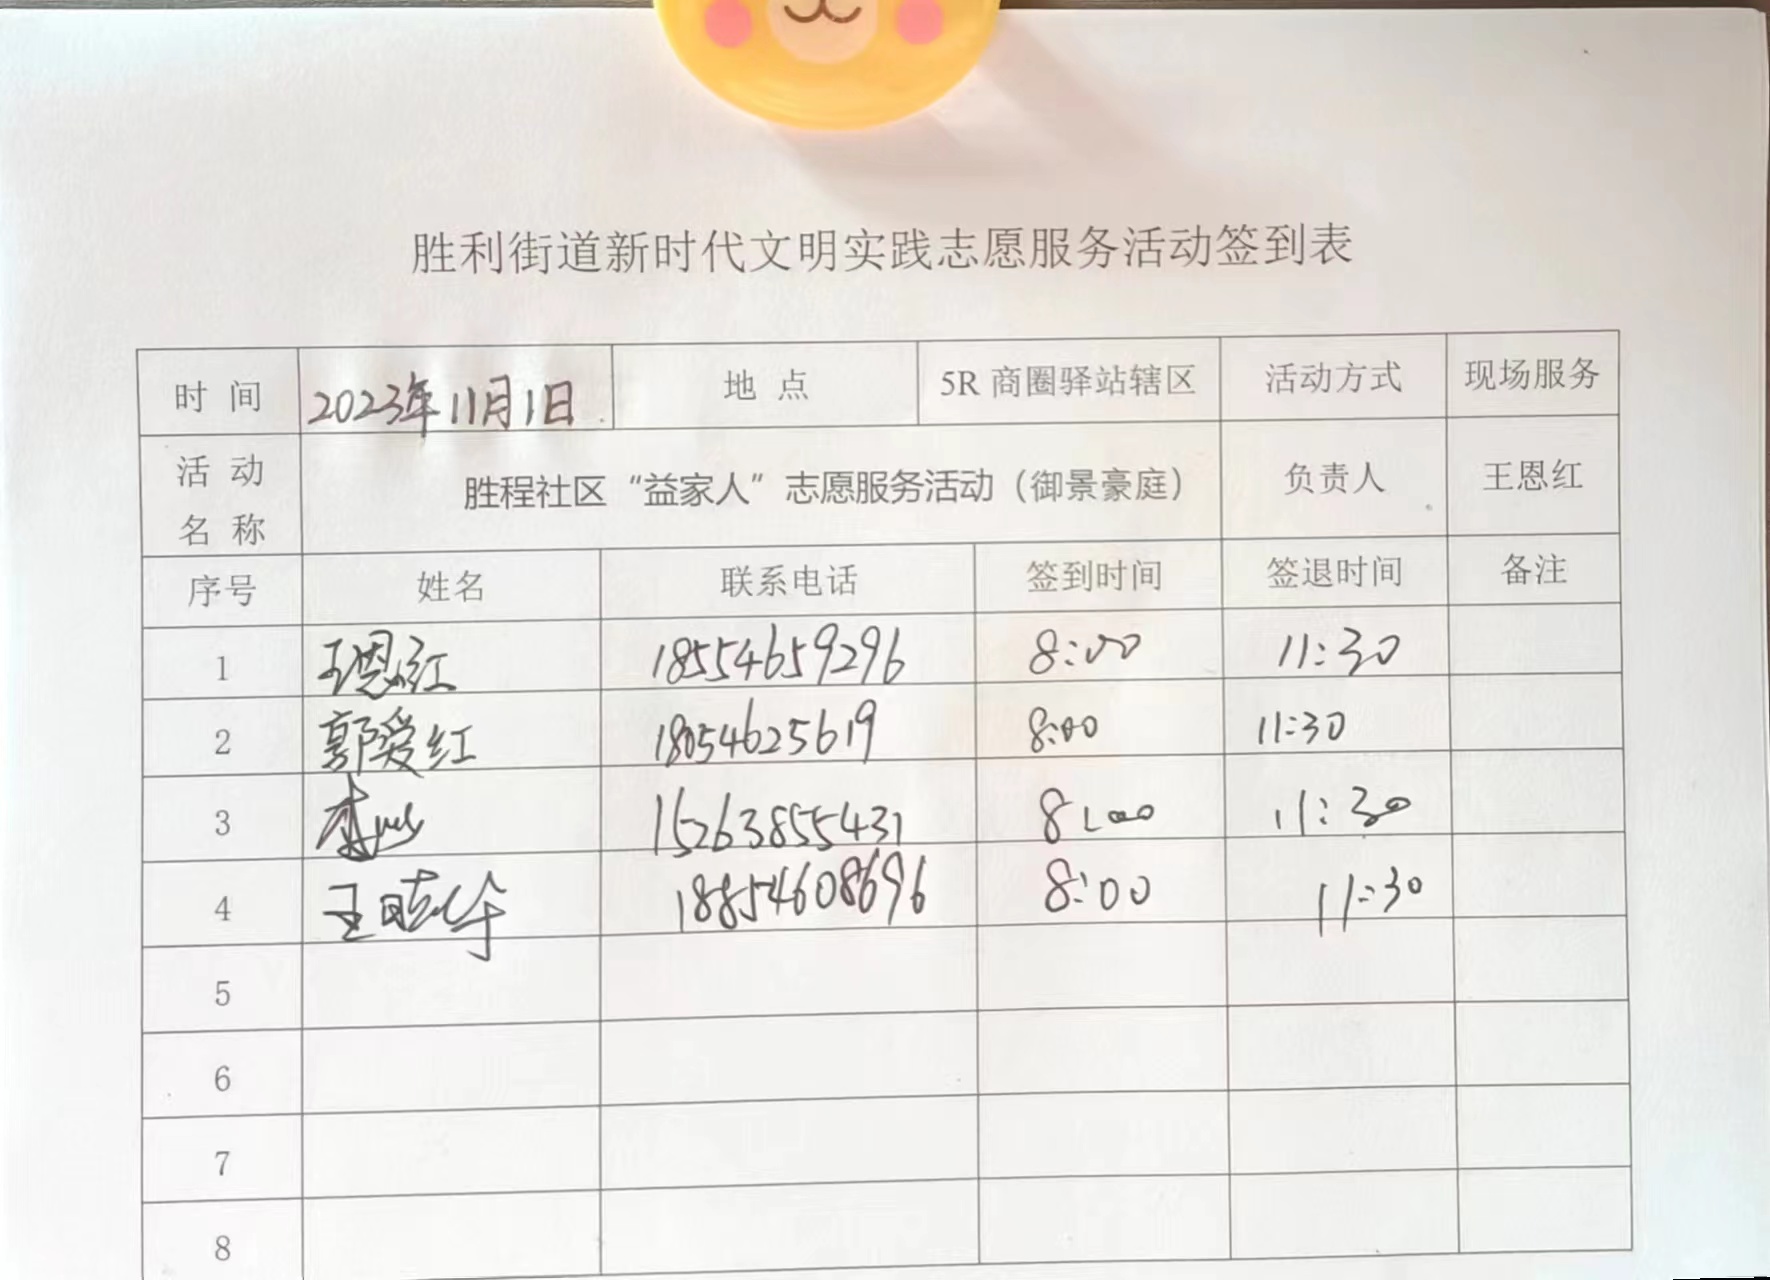 胜利街道新时代文明实践志愿服务活动签到表
时 间 2023年11月1日 地 点 5R 商圈驿站辖区 活动方式 现场服务
活 动 名 称 胜程社区“益家人”志愿服务活动（御景豪庭） 负责人 王恩红
序号 姓名 联系电话 签到时间 签退时间 备注
1 王恩红 18554659296 8:00 11:30
2 郭爱红 18054625619 8:00 11:30
3 15263855431 8:00 11:30
4 王晓华 18854608696 8:00 11:30
5
6
7
8